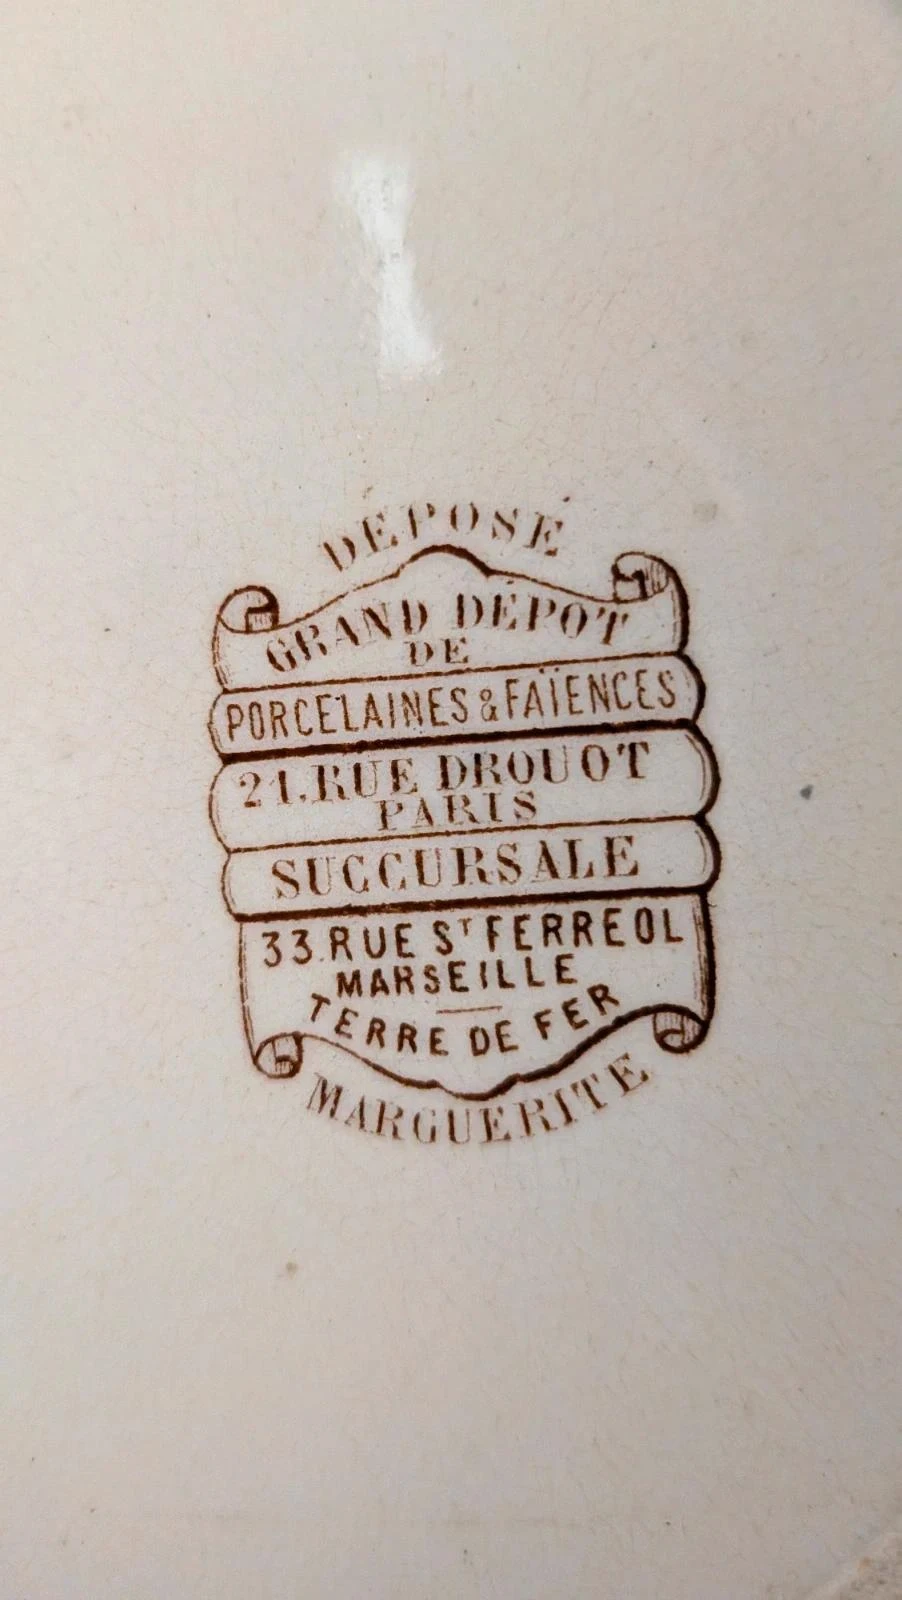 DÉPOSÉ
GRAND DÉPOT
DE
PORCELAINES & FAÏENCES
21. RUE DROUOT
PARIS
SUCCURSALE
33. RUE ST FERREOL
MARSEILLE
TERRE DE FER
MARGUERITE